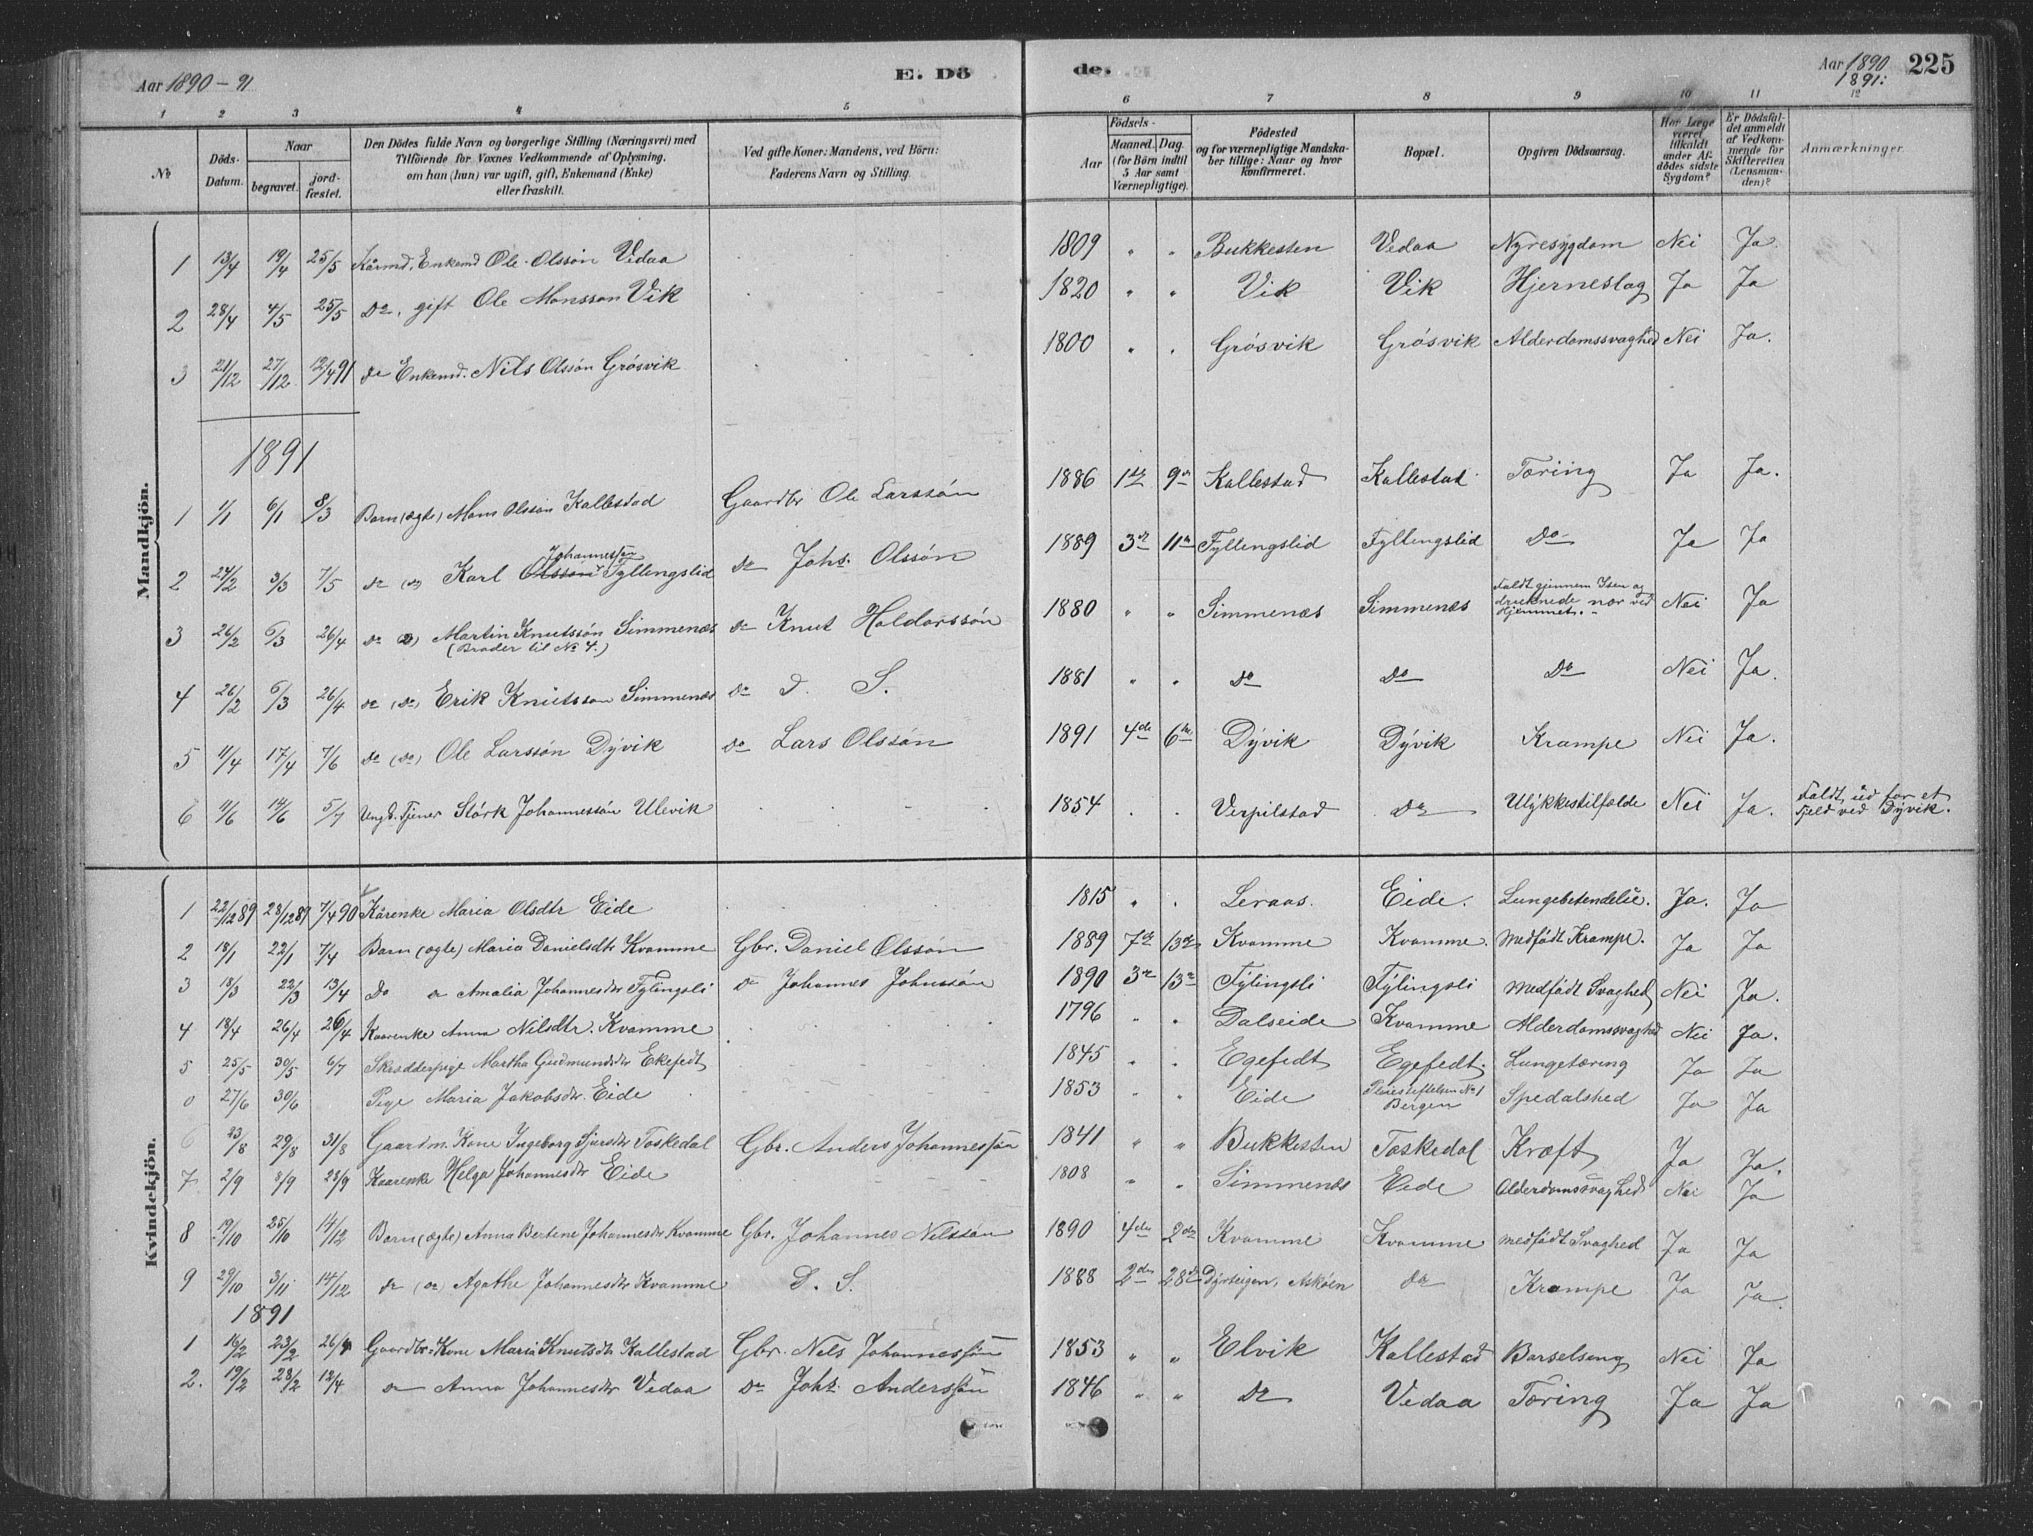 Aar 1890 - 91
E. Dö
de.
Aar 1890
1891:
225
1 2 3 4 5 6 7 8 9 10 11 12
№
Döds-Datum.
Naar
begravet.
jord-fæstet.
Den Dödes fulde Navn og borgerlige Stilling (Næringsvei) med
Tilföiende for Voxnes Vedkommende af Oplysning,
om han (hun) var ugift, gift, Enkemand (Enke)
eller fraskilt.
Ved gifte Koner: Mandens, ved Börn:
Faderens Navn og Stilling.
Födsels-
Aar
Maaned. Dag.
(for Börn indtil
5 Aar samt
Værnepligtige).
Födested
og for værnepligtige Mandska-
ber tillige: Naar og hvor
konfirmeret.
Bopæl.
Opgiven Dödsaarsag.
Har Læge
været
tilkaldt
under Af-
dödes sidste
Sygdom?
Er Dödsfal-
det anmeldt
af Vedkom-
mende for
Skifteretten
(Lensman-
den)?
Anmærkninger.
Mandkjön.
1 13/4 19/4 25/5 Kårmd, Enkemd Ole Olssön Vedaa 1809 " " Bukkesten Vedaa Nyresygdom Nei Ja.
2 28/4 4/5 25/5 Do, gift Ole Monsson Vik 1820 " " Vik Vik Hjerneslag Ja Ja
3 21/12 27/12 12/4 91 do Enkemd. Nils Olssön Grösvik 1800 " " Grösvik Grösvik Alderdomssvaghed Nei Ja.
1891
1 1/1 6/1 8/3 Barn (ægte) Mons Olsson Kallestad Gaardbr Ole Larssön 1886 1de 9de Kallestad Kallestad Tæring Ja Ja.
2 24/2 3/3 7/5 do (do) Karl Olsson Johannessön Fyllingslid do Johs. Olssön 1889 3de 11te Fyllingslid Fyllingslid Do Ja Ja
3 26/2 6/3 26/4 do (do) Martin Knutssön Simmenæs do Knut Haldorssön 1880 " " Simmenæs Simmenæs Faldt gjennem Isen og
druknede nær ved
Hjemmet. Nei Ja
(Broder til № 4.)
4 26/2 6/3 26/4 do (do) Erik Knutsson Simmenæs do D. S. 1881 " " do do Do Nei Ja.
5 11/4 17/4 7/6 do (do) Ole Larssön Dyvik do Lars Olssön 1891 4de 6te Dyvik Dyvik Krampe Nei Ja.
6 9/6 14/6 5/7 Ungk. Tjener Störk Johannessön Ulevik 1854 Verpilstad do Ulykkestilfælde Nei Ja. Faldt ud for et
Fjeld ved Dyvik.
Kvindekjön.
1 22/12 89 28/12 89 7/4 90 Kårenke Maria Olsdtr Eide 1815 " " Leraas. Eide. Lungebetendelse. Ja. Ja
2 18/1 22/1 7/4 Barn (ægte) Maria Danielsdtr Kvamme Gbr. Daniel Olssön 1889 7de 13de Kvamme Kvamme. Medfödt Krampe. Ja Ja
3 18/3 22/3 13/4 Do do Amalia Johannesdtr Fylingsli do Johannes Johnssön 1890 3de 13de Fylingsli Fylingsli Medfödt Svaghed Nei Ja.
4 18/4 26/4 26/4 Kaarenke Anna Nilsdtr. Kvamme 1796 " " Dalseide Kvamme Alderdomssvaghed Nei Ja.
5 25/5 30/5 6/7 Skrædderpige Martha Gudmundsdtr Ekefedt 1845 " " Egefedt Egefedt. Lungetæring Ja Ja
0 27/6 30/6 Pige Maria Jakobsdtr. Eide 1853 " " Eide Pleiestiftelsen № 1
Bergen Spedalshed Ja Ja
6 23/8 29/8 31/8 Gaardm. Kone Ingeborg Sjursdtr Toskedal Gbr. Anders Johannessön 1841 " " Bukkesten Toskedal Kræft Ja Ja.
7 2/9 8/9 28/9 Kaarenke Helga Johannesdtr Eide 1808 " " Simmenæs Eide Alderdomssvaghed Nei Ja
8 19/10 25/10 14/12 Barn (ægte) Anna Bertine Johannesdtr Kvamme Gbr. Johannes Nilssön 1890 4de 2den Kvamme Kvamme Medfödt Svaghed Ja Ja
9 29/10 3/11 14/12 do (do) Agathe Johannesdtr Kvamme D. S. 1888 2den 28de Dyrteigen, Askøen do Krampe Ja Ja.
1891
1 16/2 23/2 26/4 Gaardbr. Kone Mari Knutsdtr Kallestad Gbr. Nils Johannessön 1853 " " Elvik Kallestad Barselseng Nei Ja
2. 19/2 28/2 12/4 do Anna Johannesdtr Vedaa do Johs. Anderssön 1846 " " do Vedaa Tæring Ja Ja